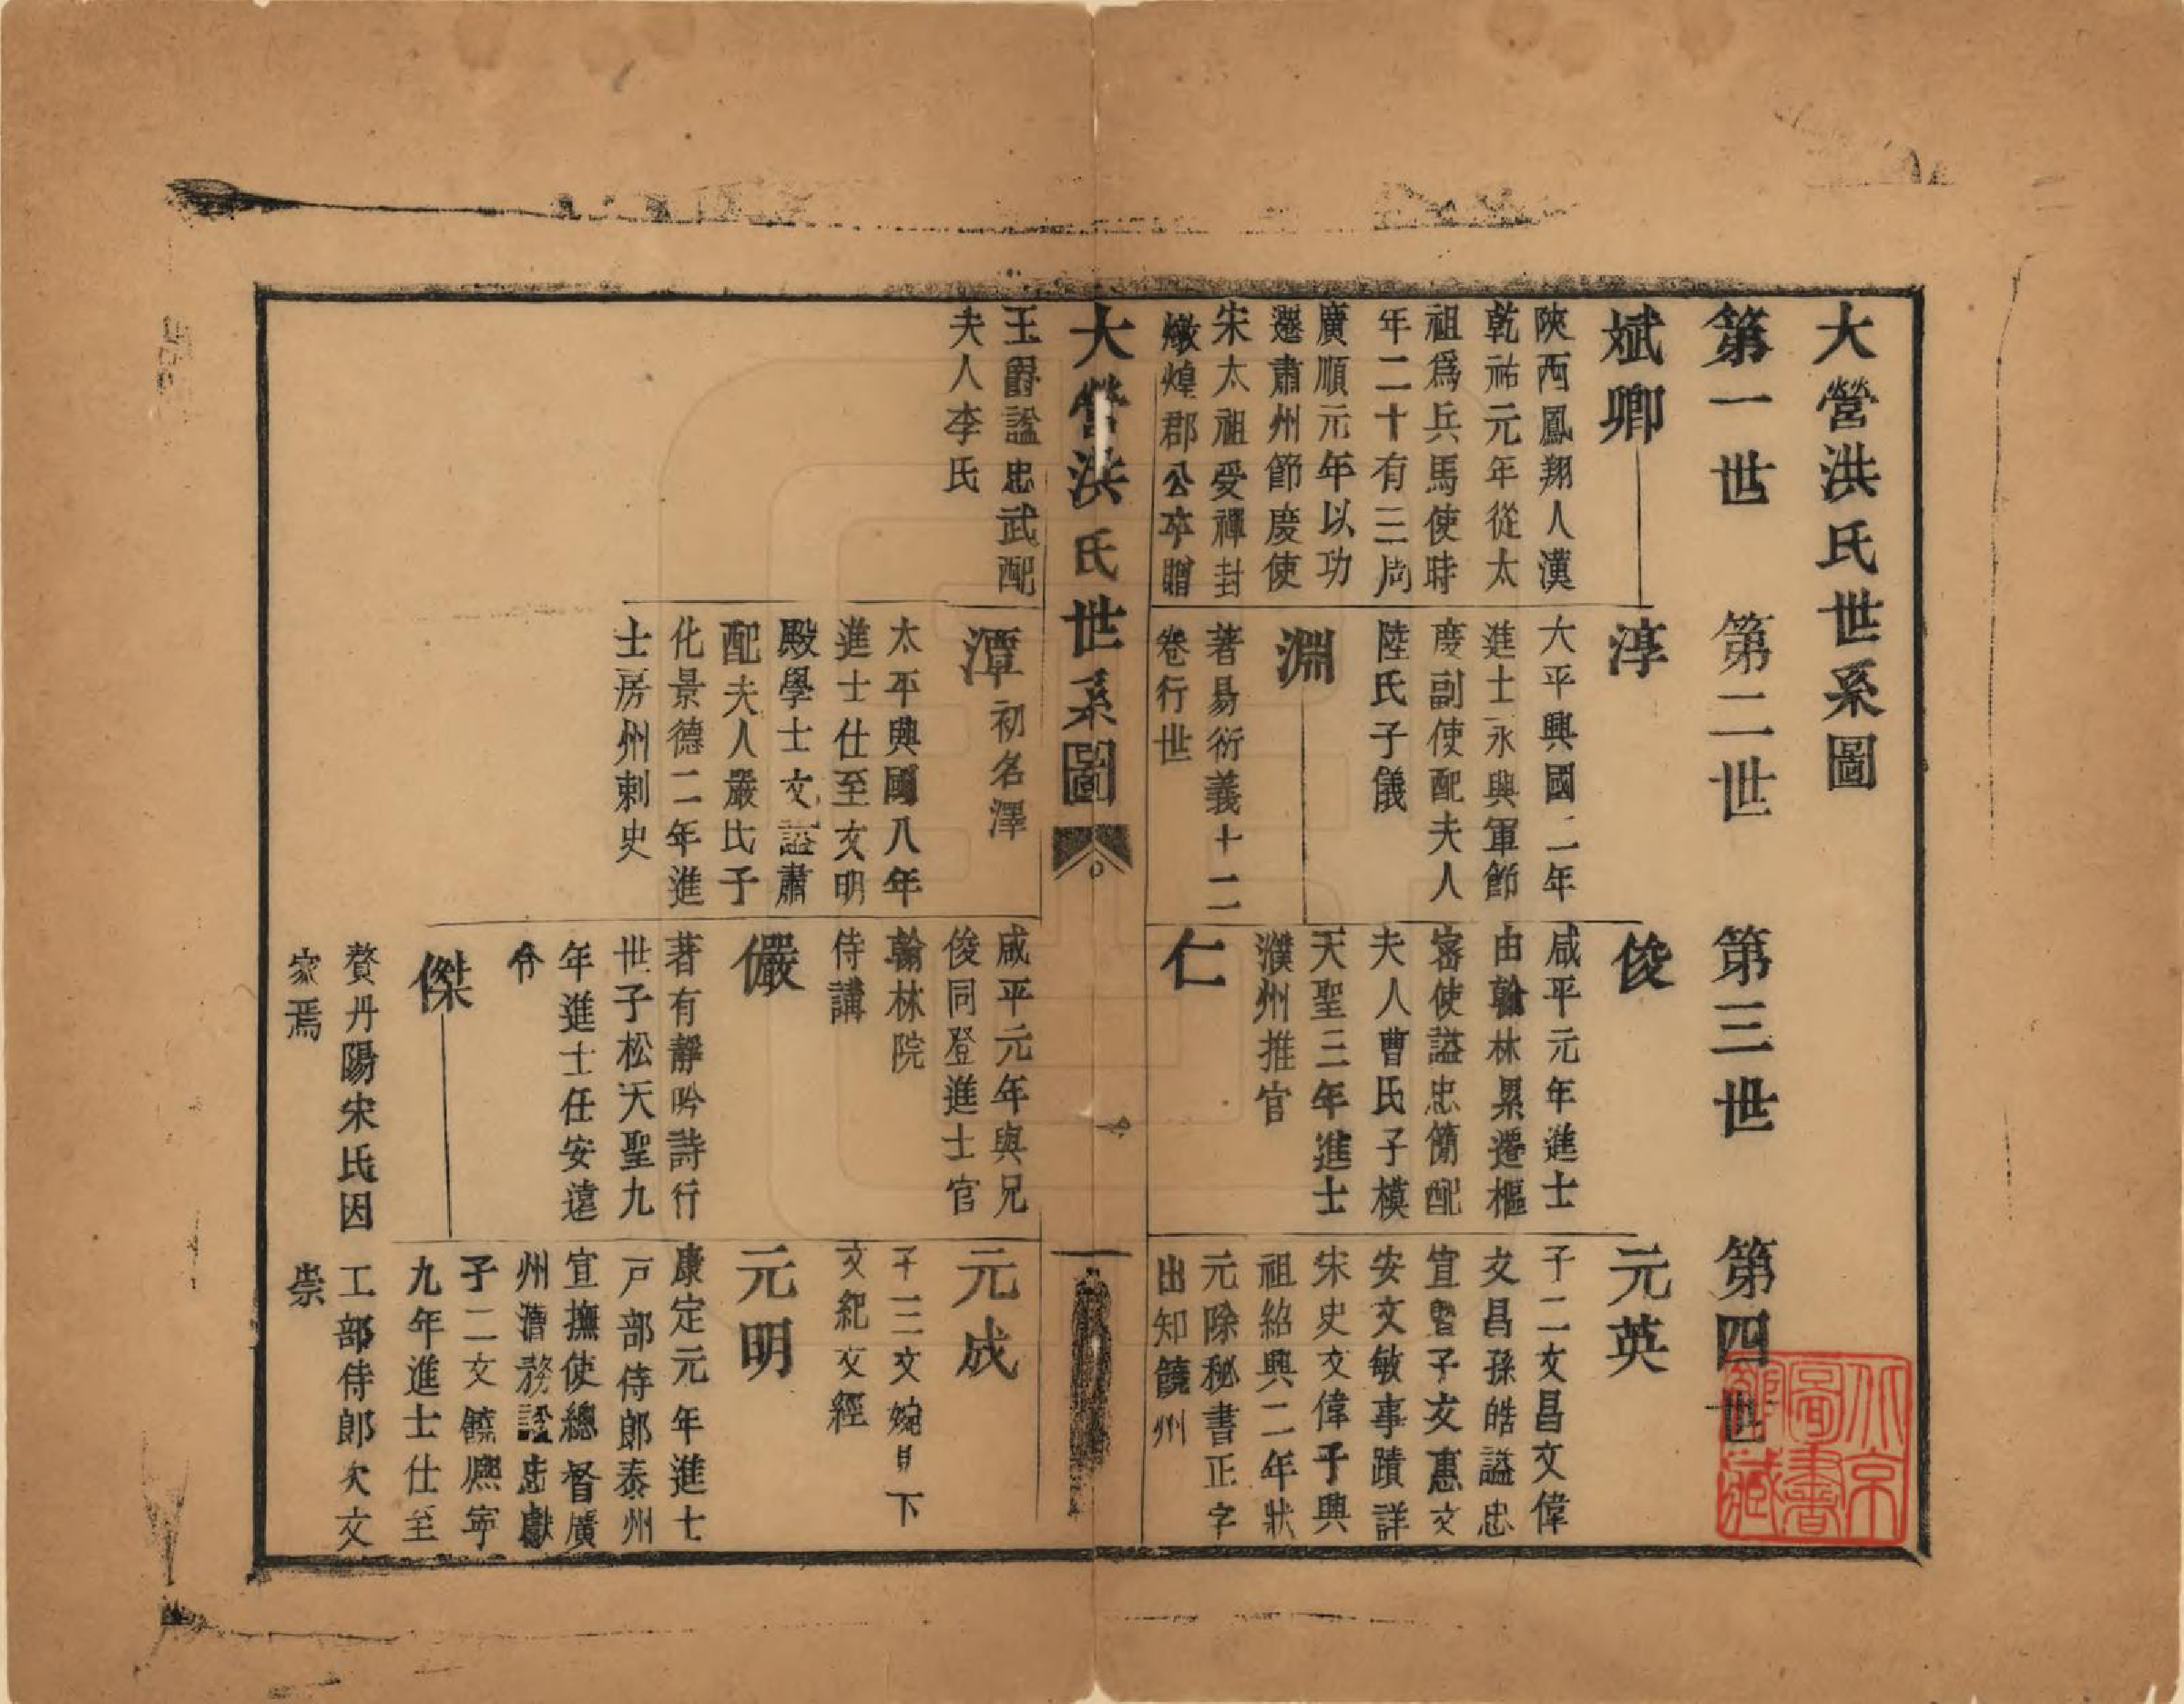 大營洪氏世系圖
第一世　第二世　第三世　第四世
斌卿
陝西鳳翔人漢
乾祐元年從太
祖爲兵馬使時
年二十有三周
廣順元年以功
遷肅州節度使
宋太祖受禪封
燉煌郡公卒贈
王爵謚忠武配
夫人李氏
淳
太平興國二年
進士永興軍節
度副使配夫人
陸氏子儀
淵
著易衍義十二
卷行世
潭初名澤
太平興國八年
進士仕至文明
殿學士文謚肅
配夫人嚴氏子
化景德二年進
士房州刺史
俊
咸平元年進士
由翰林累遷樞
密使謚忠簡配
夫人曹氏子模
天聖三年進士
濮州推官
仁
咸平元年與兄
俊同登進士官
翰林院
侍講
儼
著有靜吟詩行
世子松天聖九
年進士任安遠
令
傑
贅丹陽宋氏因
家焉
元英
子二文昌文偉
文昌孫皓謚忠
宣晧子文惠文
安文敏事蹟詳
宋史文偉子興
祖紹興二年狀
元除秘書正字
出知饒州
元成
子三文婉早下
文紀文經
元明
康定元年進士
戸部侍郎泰州
宣撫使總督廣
州漕務謚忠獻
子二文饒熙寧
九年進士仕至
工部侍郎次文
崇
大營洪氏世系圖
一
北京圖書館藏